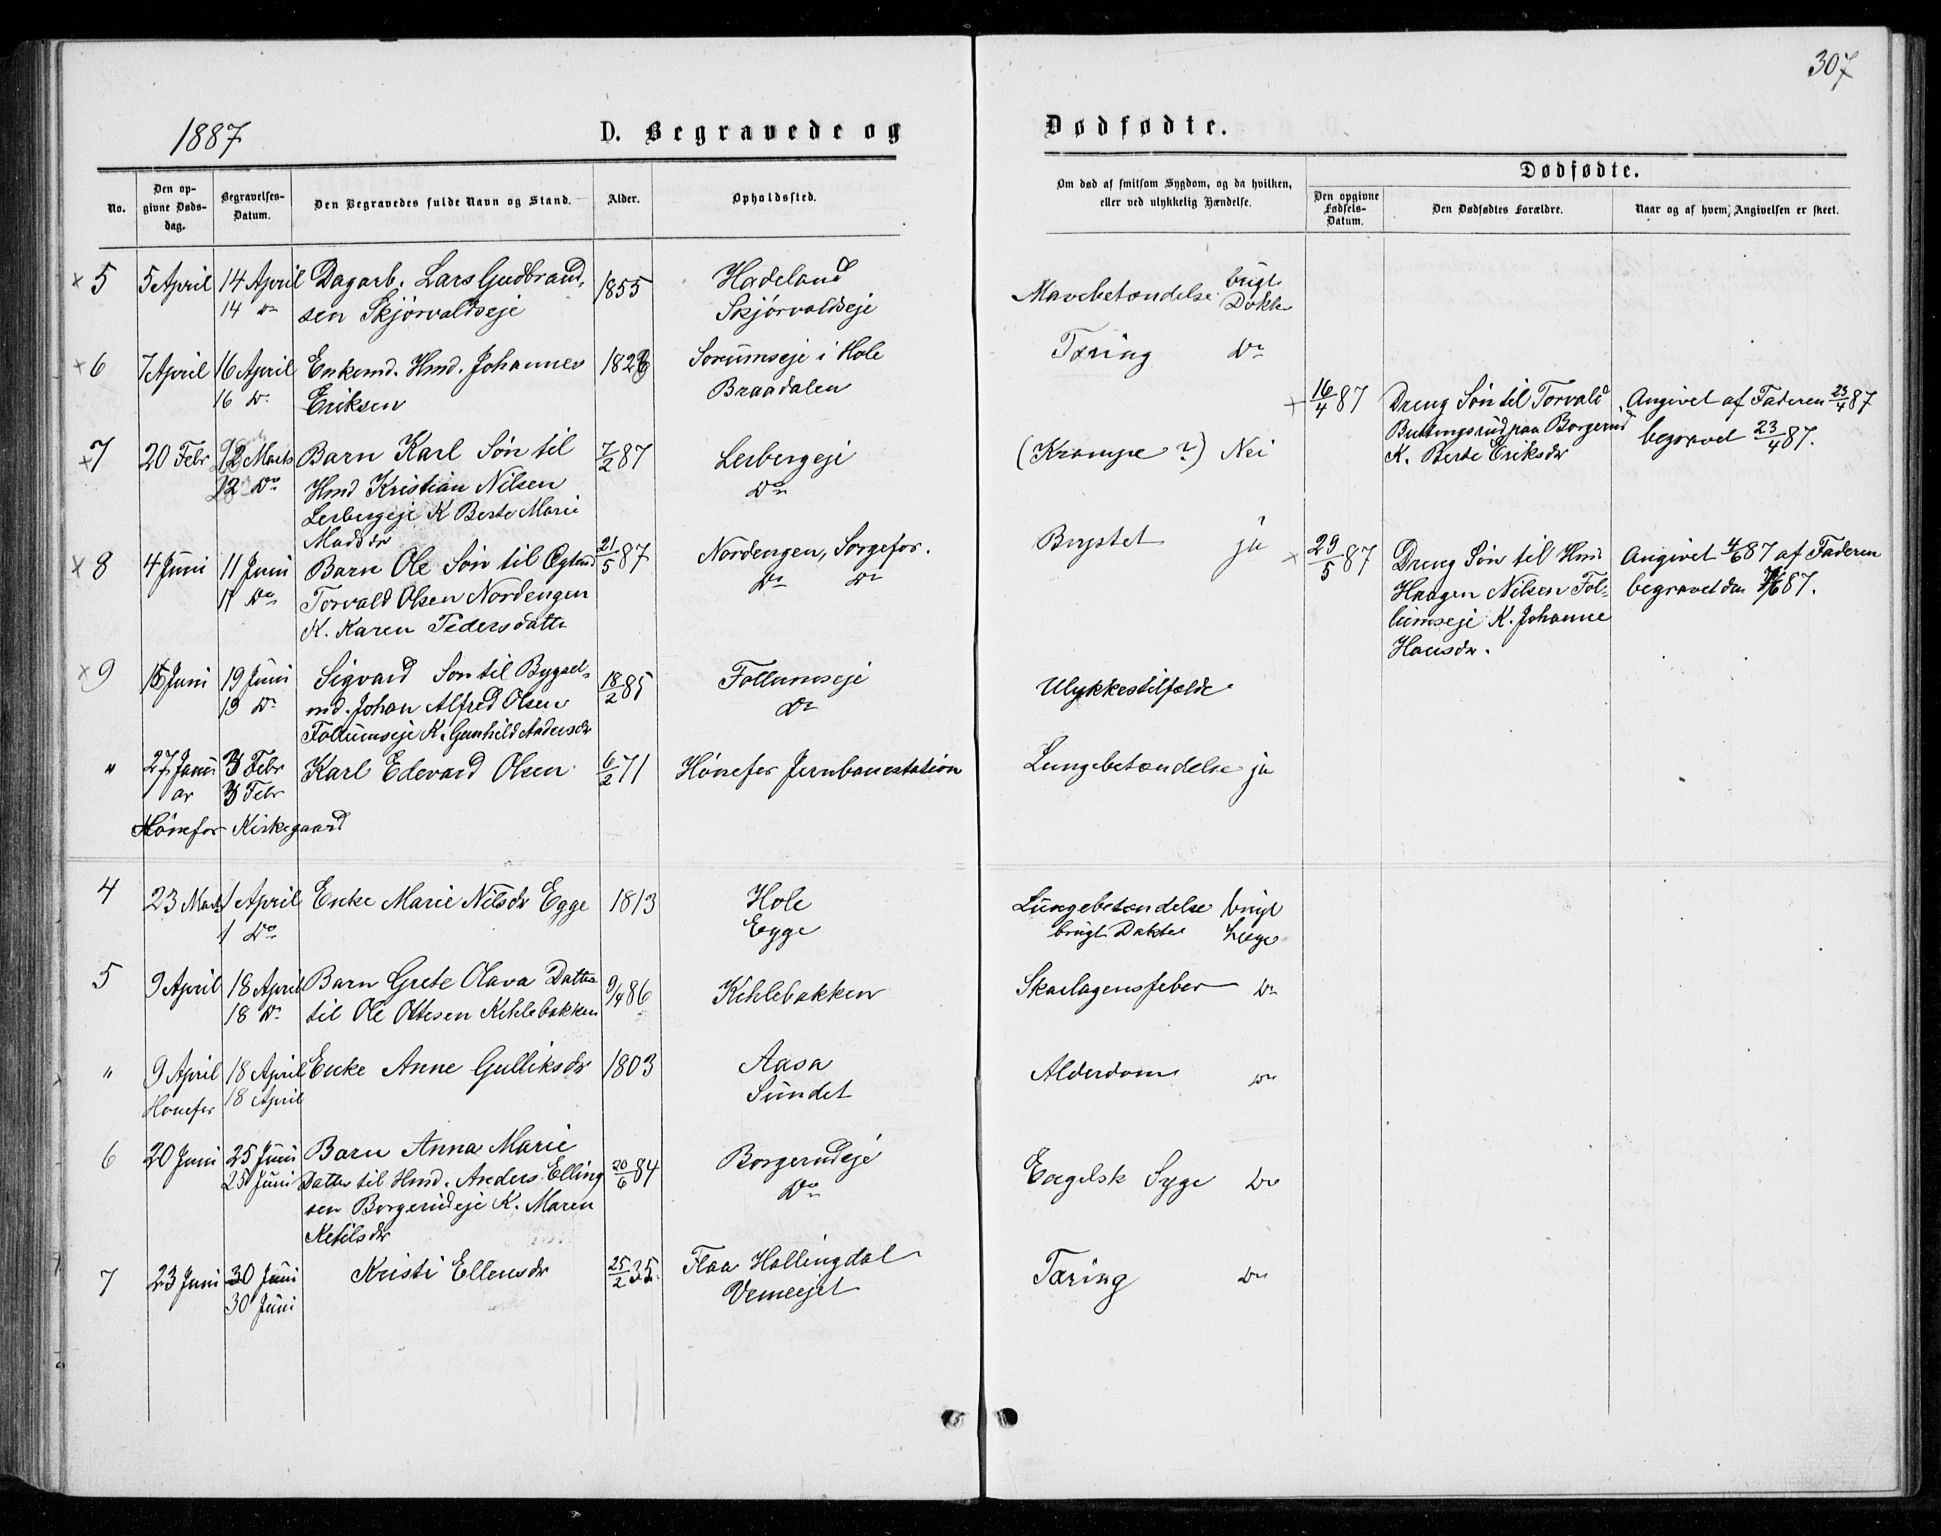 307
1887
D. Begravede og
Dødfødte.
No.
Den op-
givne Døds-
dag.
Begravelses-
Datum.
Den Begravedes fulde Navn og Stand.
Alder.
Opholdssted.
Om død af smitsom Sygdom, og da hvilken,
eller ved ulykkelig Hændelse.
Dødfødte.
Den opgivne
Fødsels-
Datum.
Den Dødfødtes Forældre.
Naar og af hvem, Angivelsen er skeet.
× 5 5 April 14 April Dagarb. Lars Gudbrand- 1855 Hadeland Mavebetændelse brugt
14 Do sen Skjørvaldseje Skjørvaldseje Dokt
× 6 7 April 16 April Enkemd. Hmd. Johannes Sorumseje i Hole Tæring Do
16 Do Eriksen Braadalen
× 16/4 87 Dreng Søn til Torvald Angivet af Faderen 23/4 87
Buttingsrud paa Borgerud begravet 23/4 87.
K. Berte Eriksdr
× 7 20 Febr 12 Marts Barn Karl Søn til 7/2 87 Lerbergeje (Krampe?) Nei
12 Do Hmd Kristian Nilsen Do
Lerbergeje K Berte Marie
Madsdr
× 8 4 Juni 11 Juni Barn Ole Søn til 21/5 87 Nordengen, Sorgefor. Brystet ja
11 Do Torvald Olsen Nordengen Do Do
K. Karen Pedersdatter
× 29/5 87 Dreng Søn til Hmd Angivet 4/6 87 af Faderen
Haagen Nilsen Fol- begravet den /6 87.
lumseje K. Johanne
Hansdr.
× 9 Juni 19 Juni Sigvard Søn til Bygsel- 18/2 85 Follumseje Ulykkestilfælde
19 Do md. Johan Alfred Olsen Do
Follumseje K. Gunhild Andersdr
" 27 Janu 3 Febr Karl Edevard Olsen 6/2 71 Hønefos Jernbanestation Lungebetændelse ja
ar 3 Febr
Hønefos Kirkegaard
4 23 Marts 1 April Enke Marie Nilsdr Egge 1813 Hole Lungebetændelse brugt
1 Do Egge brugt Dokter Læge
5 9 April 18 April Barn Grete Olava Datter 9/4 86 Kihlebakken Skarlagensfeber Do
18 Do til Ole Ottesen Kihlebakken
" 9 April 18 April Enke Anne Gulliksdr 1803 Aasa Alderdom Do
Hønefos 18 April Sundet
6 20 Juni 25 Juni Barn Anna Marie 20/6 84 Borgerudeje Engelsk Syge Do
25 Juni Datter til Hmd. Anders Elling Do
sen Borgerudeje K. Maren
Ketilsdr
7 23 Juni 30 Juni Kristi Ellensdr 25/2 35. Flaa Hallingdal Tæring Do
30 Juni Vemeejet